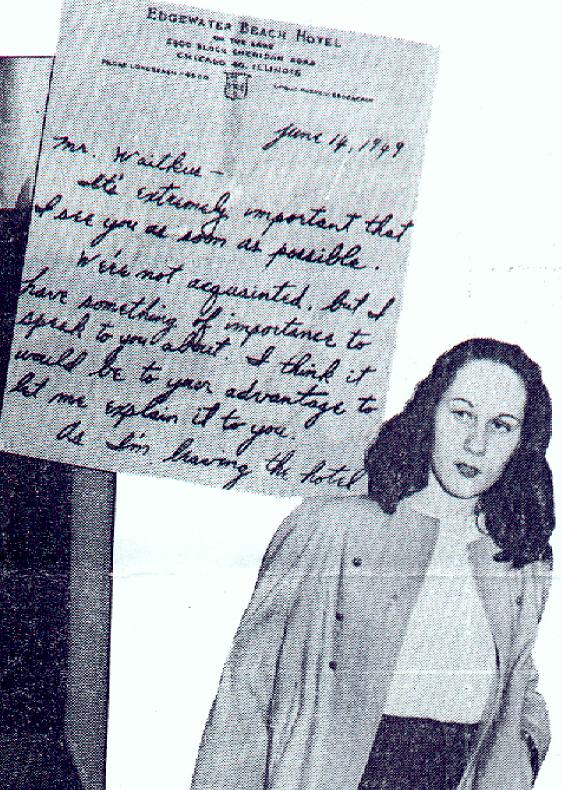 EDGEWATER BEACH HOTEL
ON THE LAKE
5300 BLOCK SHERIDAN ROAD
CHICAGO 40, ILLINOIS
June 14, 1949
Mr. Waitkus —
It's extremely important that
I see you as soon as possible.
We're not acquainted, but I
have something of importance to
speak to you about. I think it
would be to your advantage to
let me explain it to you.
As I'm leaving the hotel